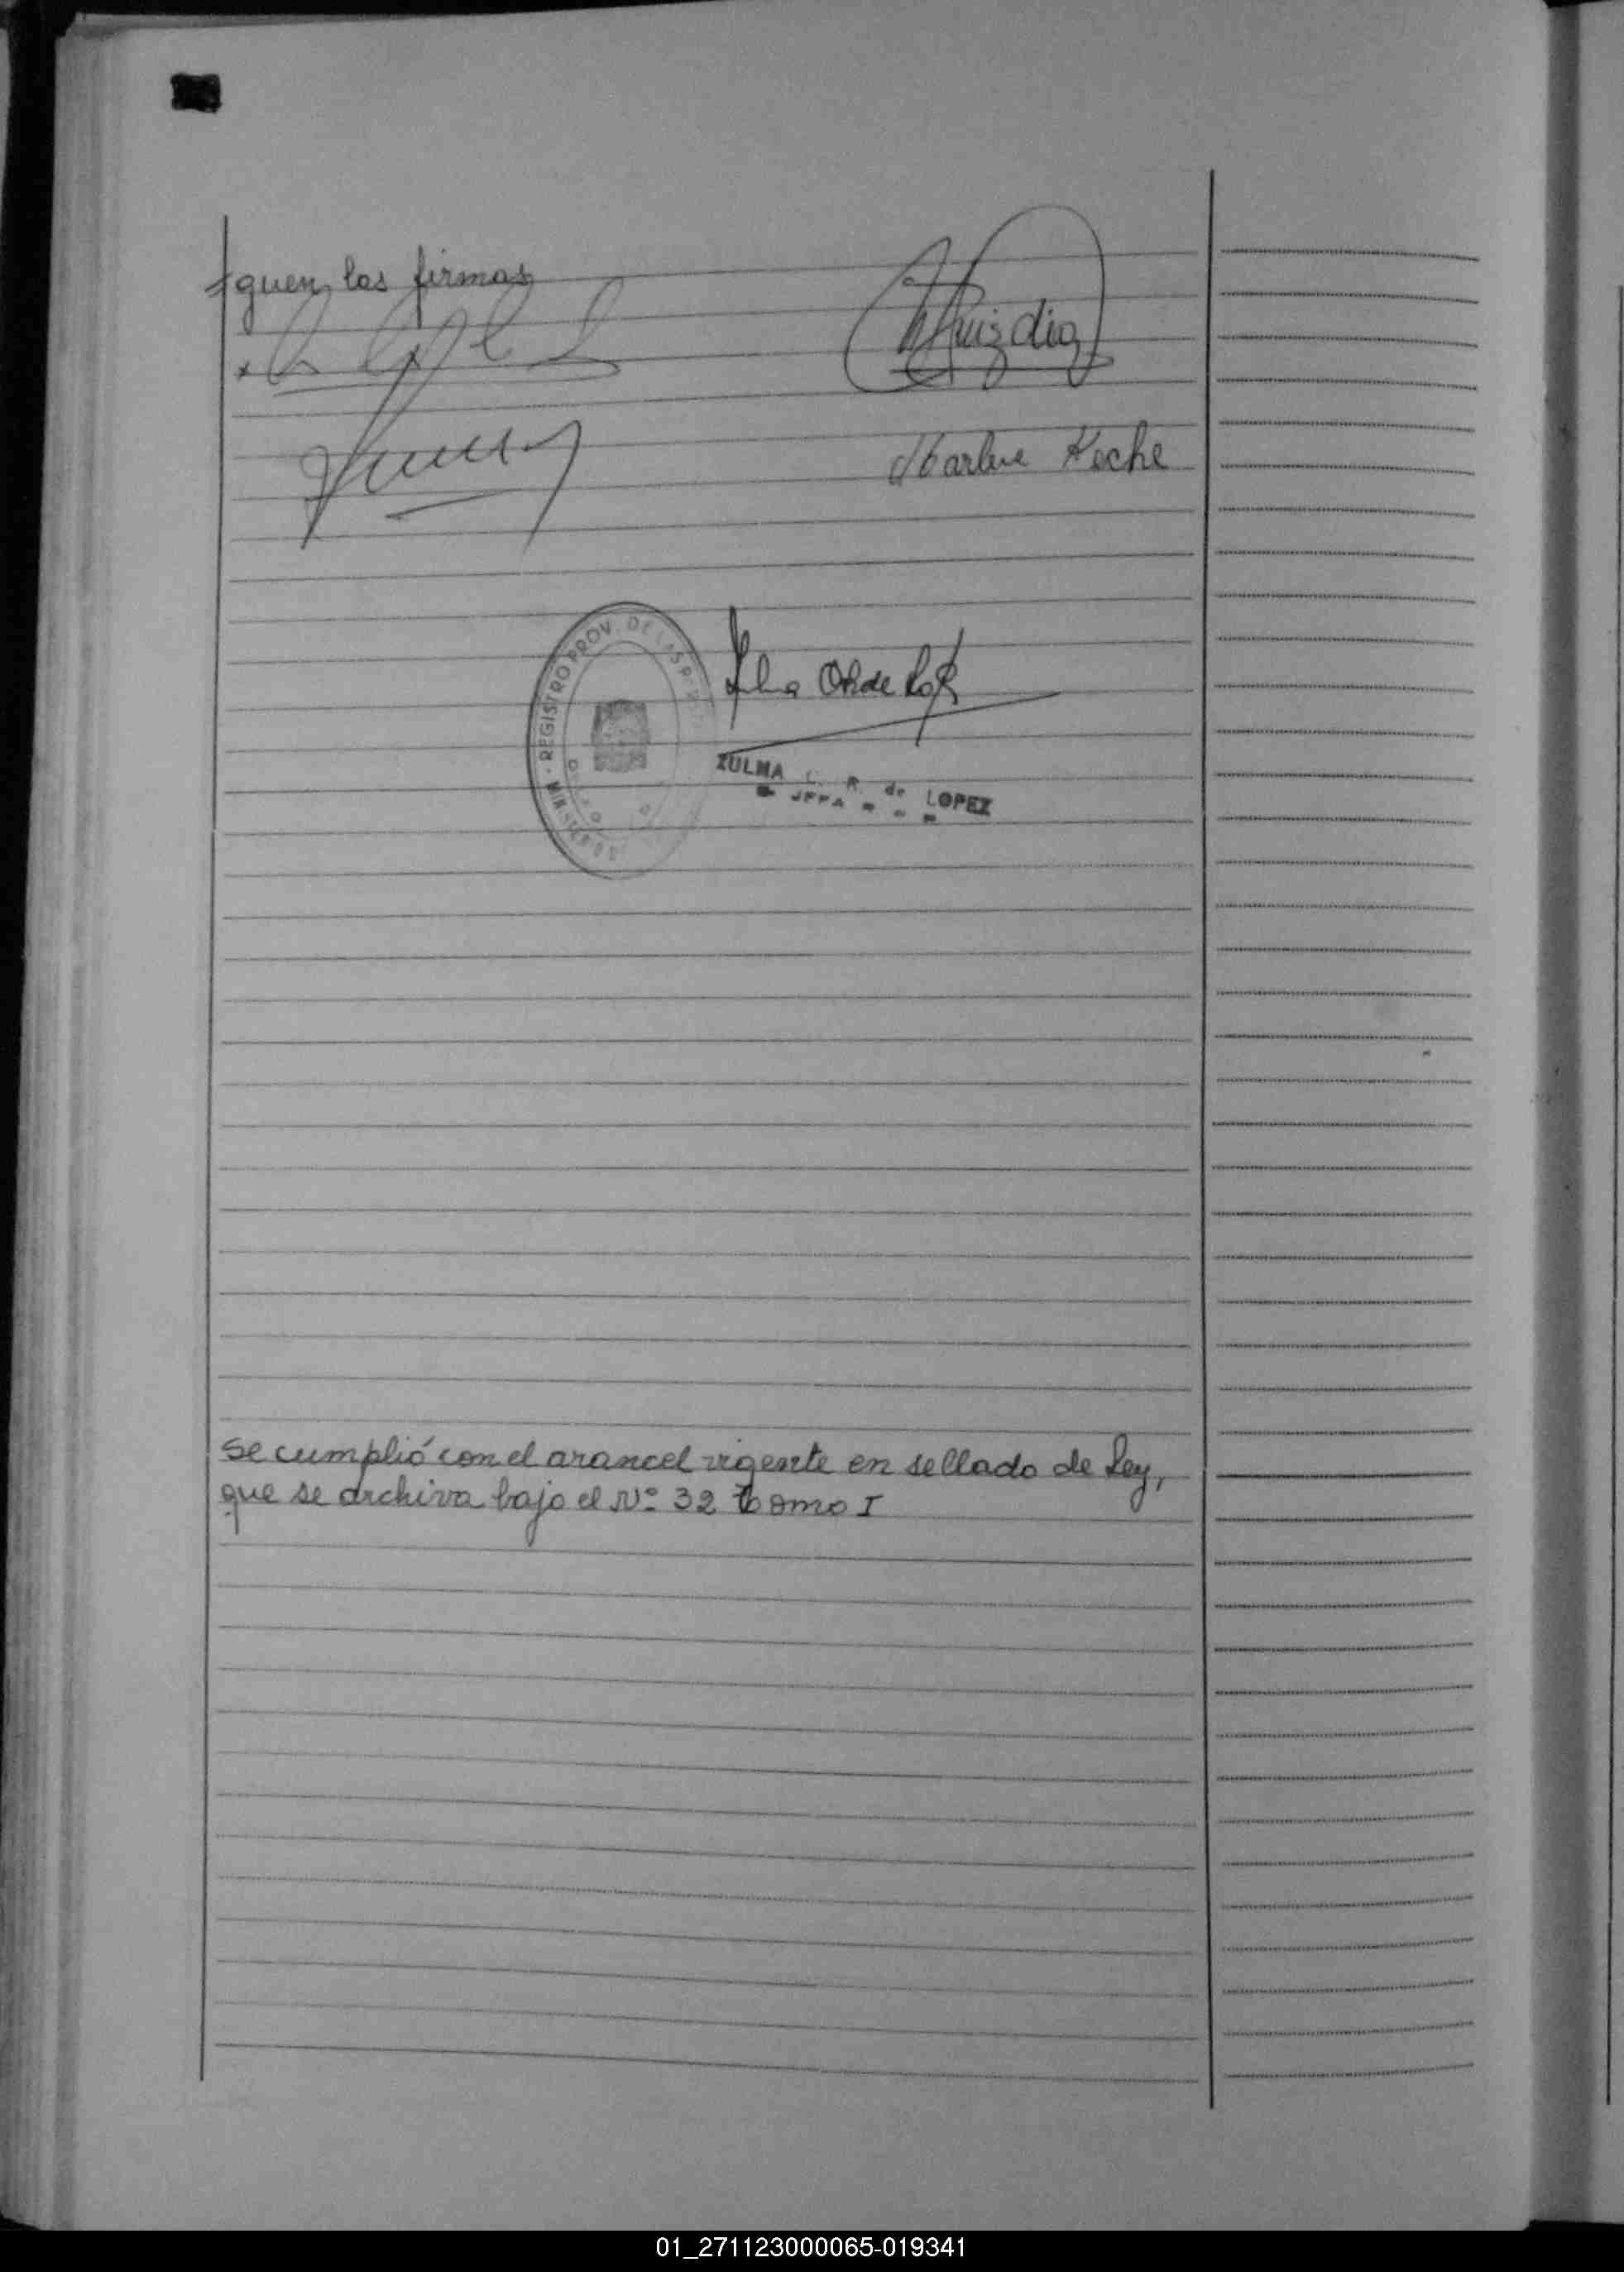 siguen las firmas
Ruiz diaz
Marlene Koche
REGISTRO PROV. DE LAS P
ZULMA L. R. de LOPEZ
JEFA
Se cumplió con el arancel vigente en sellado de Ley,
que se archiva bajo el Nº 32 Tomo I
01_271123000065-019341